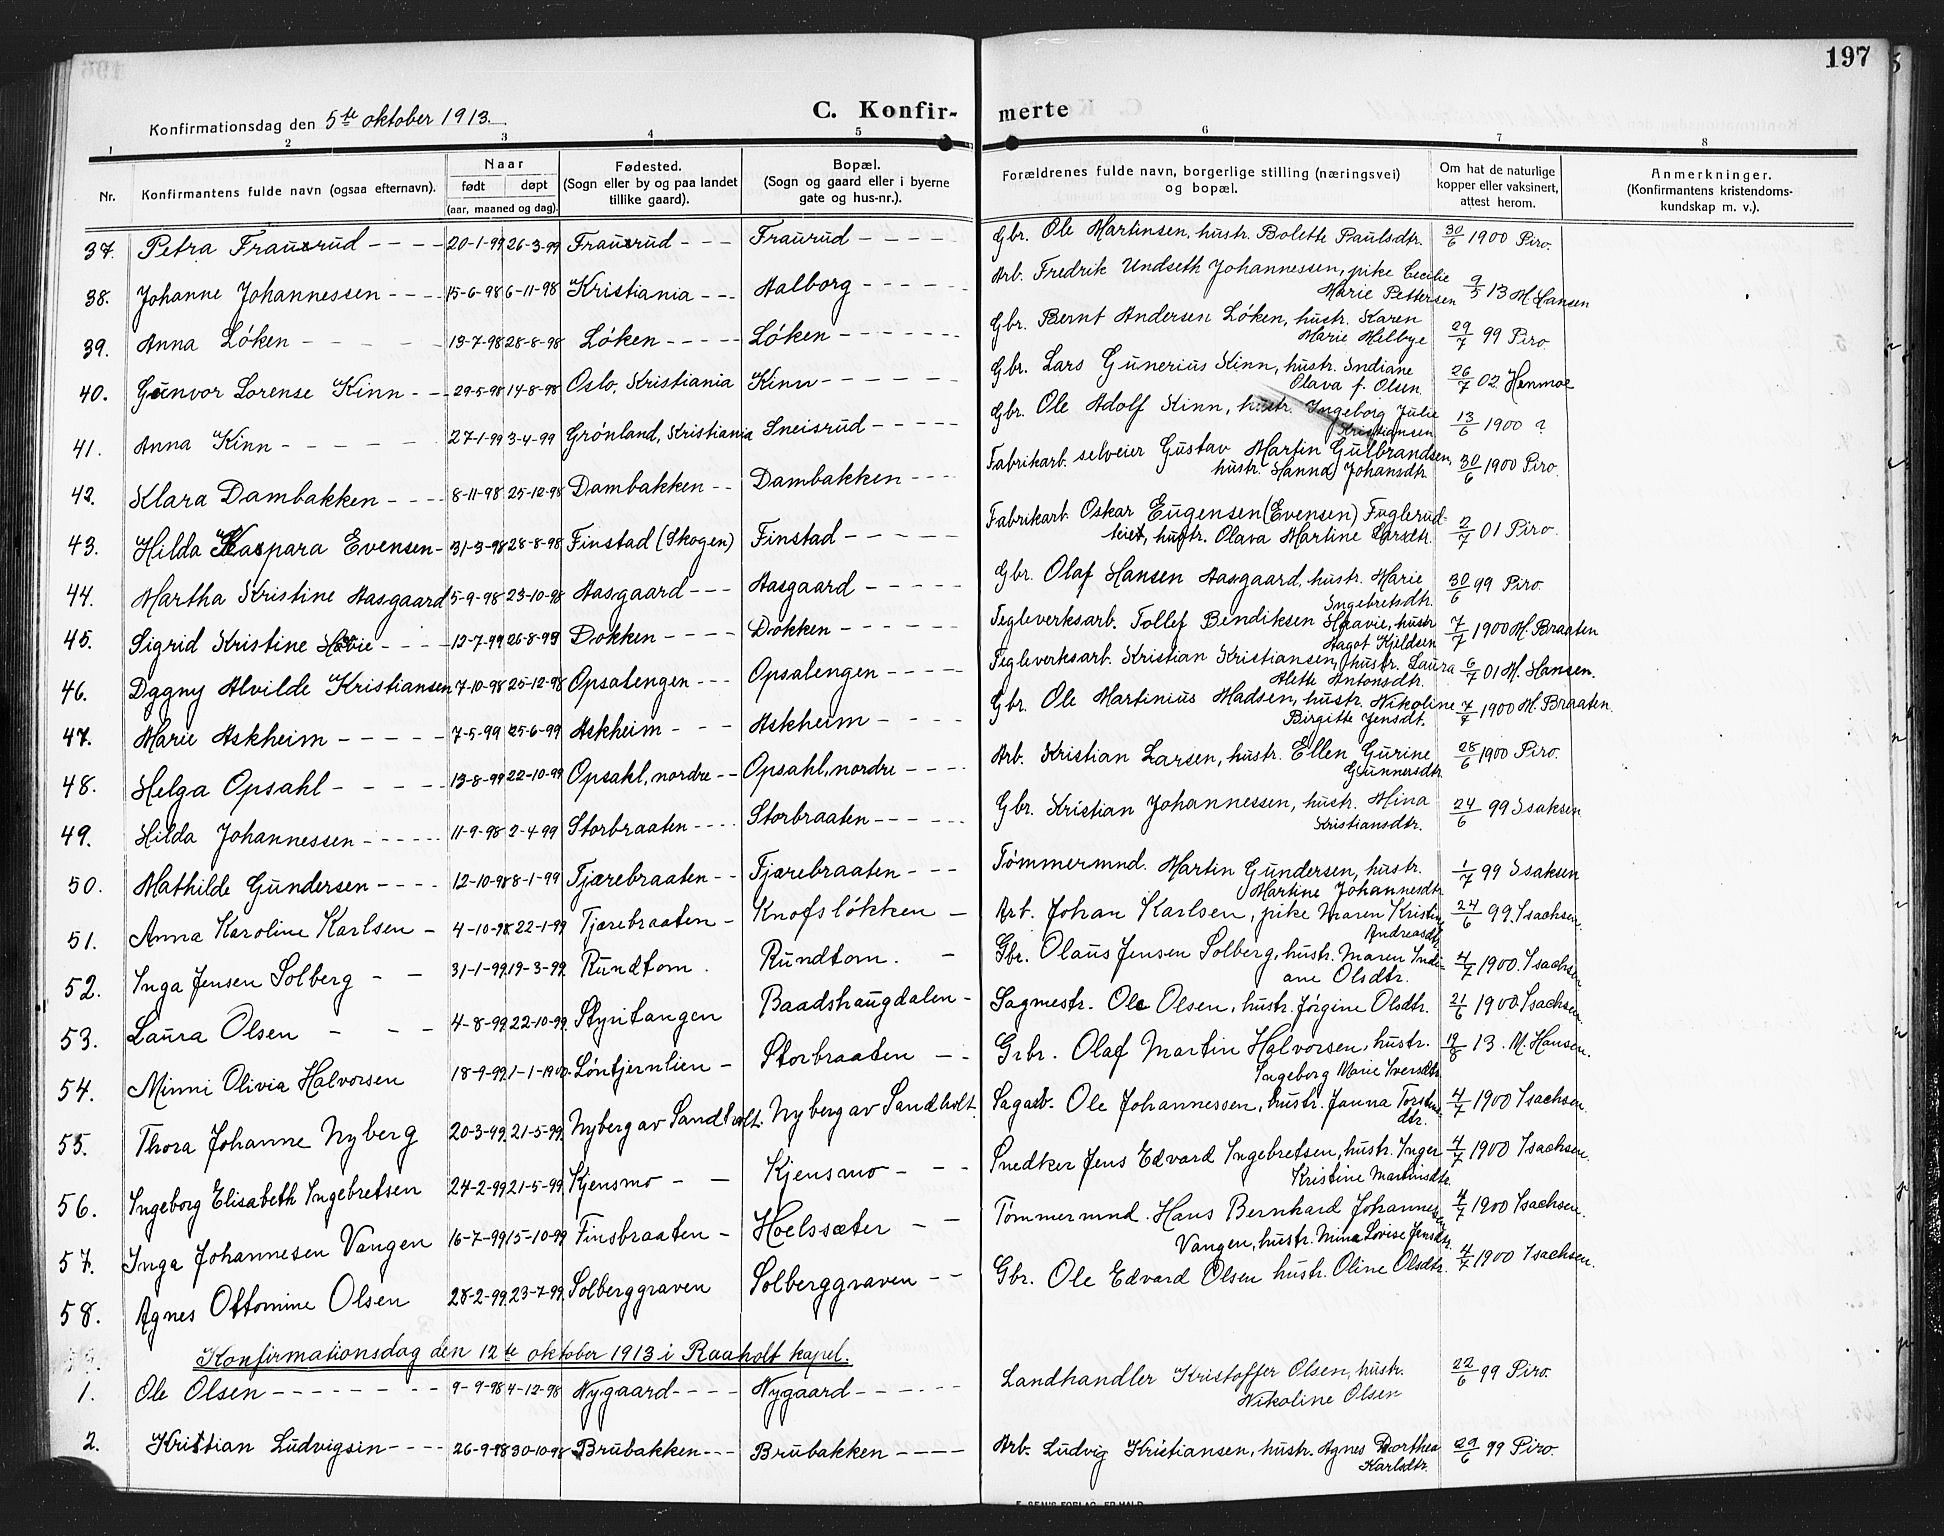 197
Konfirmationsdag den 5te oktober 1913.
C. Konfir- merte
1 2 3 4 5 6 7 8
Nr. Konfirmantens fulde navn (ogsaa efternavn). Naar født døpt (aar, maaned og dag). Fødested. (Sogn eller by og paa landet tillike gaard). Bopæl. (Sogn og gaard eller i byerne gate og hus-nr.). Forældrenes fulde navn, borgerlige stilling (næringsvei) og bopæl. Om hat de naturlige kopper eller vaksinert, attest herom. Anmerkninger. (Konfirmantens kristendoms-kundskap m. v.).
37. Petra Fraurud - - - - 20-1-99 26-3-99 Fraurud - - - Fraurud - - - - Gbr. Ole Martinsen, hustr. Bolette Paulsdtr. 30/6 1900 Piro.
38. Johanne Johannessen - - - - 15-6-98 6-11-98 Kristiania - - - Aalborg - - - - - Arb. Fredrik Undseth Johannessen, pike Cecilie Marie Pettersen 9/5 13 M. Hansen
39. Anna Løken - - - - 13-7-98 28-8-98 Løken - - - - Løken - - - - - Gbr. Bernt Andersen Løken, hustr. Karen Marie Melbye 29/7 99 Piro.
40. Gunvor Lorense Kinn - - - 29-5-98 14-8-98 Oslo, Kristiania Kinn - - - - - Gbr. Lars Gunerius Kinn, hustr. Indiane Olava f. Olsen 26/7 02 Henmoe
41. Anna Kinn - - - - 27-1-99 3-4-99 Grønland, Kristiania Sneisrud - - - - - Gbr. Ole Adolf Kinn, hustr. Ingeborg Julie Kristiansen 13/6 1900 ?
42. Klara Dambakken - - - - 8-11-98 25-12-98 Dambakken - - Dambakken - - - - Fabrikarb. selveier Gustav Martin Gulbrandsen, hustr. Hanna Johansdtr. 30/6 1900 Piro.
43. Hilda Kaspara Evensen - 31-3-98 28-8-98 Finstad (Skogen) Finstad - - - - - Fabrikarb. Oskar Eugensen (Evensen) Fuglerud-teiet, hustr. Olava Martine Larsdtr. 2/7 01 Piro.
44. Martha Kristine Aasgaard 5-9-98 23-10-98 Aasgaard - - - Aasgaard - - - - - Gbr. Olaf Hansen Aasgaard, hustr. Marie Ingebretsdtr. 30/6 99 Piro.
45. Sigrid Kristine Høvie - - - - 12-7-99 26-8-99 Dokken - - - - Dokken - - - - - Teglverksarb. Tollef Bendiksen Haavie, hustr. Aagot Kjeldsen 7/7 1900 M. Braaten
46. Dagny Alvilde Kristiansen 7-10-98 25-12-98 Opsalengen - - - Opsalengen - - - - Teglverksarb. Kristian Kristiansen, hustr. Laura Alette Antonsdtr. 6/7 01 M. Hansen.
47. Marie Askheim - - - - - 7-5-99 25-6-99 Askheim - - - Askheim - - - - Gbr. Ole Martinius Madsen, hustr. Nikoline Birgitte Jensdt. 7/7 1900 M. Braaten.
48. Helga Opsahl - - - - - 13-8-99 22-10-99 Opsahl, nordre - - Opsahl, nordre - - - Arb. Kristian Larsen, hustr. Ellen Gurine Gunnersdtr. 28/6 1900 Piro.
49. Hilda Johannessen - - - - - 11-9-98 2-4-99 Storbraaten - - - - Storbraaten - - - - - Gbr. Kristian Johannessen, hustr. Mina Kristiansdtr. 24/6 99 Isaksen
50. Mathilde Gundersen - - - - 12-10-98 8-1-99 Tjærebraaten - - Tjærebraaten - - - Tømmermnd. Martin Gundersen, hustr. Martine Johannesdtr. 1/7 99 Isaksen
51. Anna Karoline Karlsen - 4-10-98 22-1-99 Tjærebraaten - Knofsløkken - Arb. Johan Karlsen, pike Maren Kristine Andreasdtr. 24/6 99. Isachsen.
52. Inga Jensen Solberg - - 31-1-99 19-3-99. Rundtom. Rundtom. - Gbr. Olaus Jensen Solberg, hustr. Maren Indi-ane Olsdtr. 4/7 1900. Isachsen
53. Laura Olsen - - - 4-8-99. 22-10-99. Styritangen Baadshaugdalen - Sagmestr. Ole Olsen, hustr. Jørgine Olsdtr. 21/6 1900. Isachsen.
54. Minni Olivia Halvorsen 18-9-99. 1-1-1900. Løntjernlien - Storbraaten - - Grbr. Olaf Martin Halvorsen, hustr. Ingeborg Marie Iversdtr. 19/8 13. M. Hansen.
55. Thora Johanne Nyberg 20-3-99. 21-5-99. Nyberg av Sandholt. Nyberg av Sandholt. Sagarb. Ole Johannessen, hustr. Janna Torstens-dtr. 4/7 1900 Isachsen.
56. Ingeborg Elisabeth Ingebretsen 24-2-99. 21-5-99. Kjensmo - - Kjensmo - - - Snedker Jens Edvard Ingebretsen, hustr. Inger Kristine Martinsdtr. 4/7 1900 Isachsen.
57. Inga Johannesen Vangen 16-7-99 15-10-99. Finsbraaten - Hoelssæter - - Tømmermnd. Hans Bernhard Johannesen Vangen, hustr. Mina Lovise Jensdtr. 4/7 1900 Isachsen.
58. Agnes Ottomine Olsen 28-2-99. 23-7-99. Solberggraven Solberggraven - - Gbr. Ole Edvard Olsen hustr. Oline Olsdtr. 4/7 1900 Isachsen.
Konfirmationsdag den 12te oktober 1913 i Raaholt kapel.
1. Ole Olsen - - - - - - - - 9-9-98 4-12-98 Nygaard - - - - Nygaard - - - - - Landhandler Kristoffer Olsen, hustr. Nikoline Olsen 22/6 99 Piro.
2. Kristian Ludvigsin - - - - 26-9-98 30-10-98 Brubakken - - - Brubakken - - - - Arb. Ludvig Kristiansen, hustr. Agnes Dorthea Karlsdtr. 29/6 99 Piro.